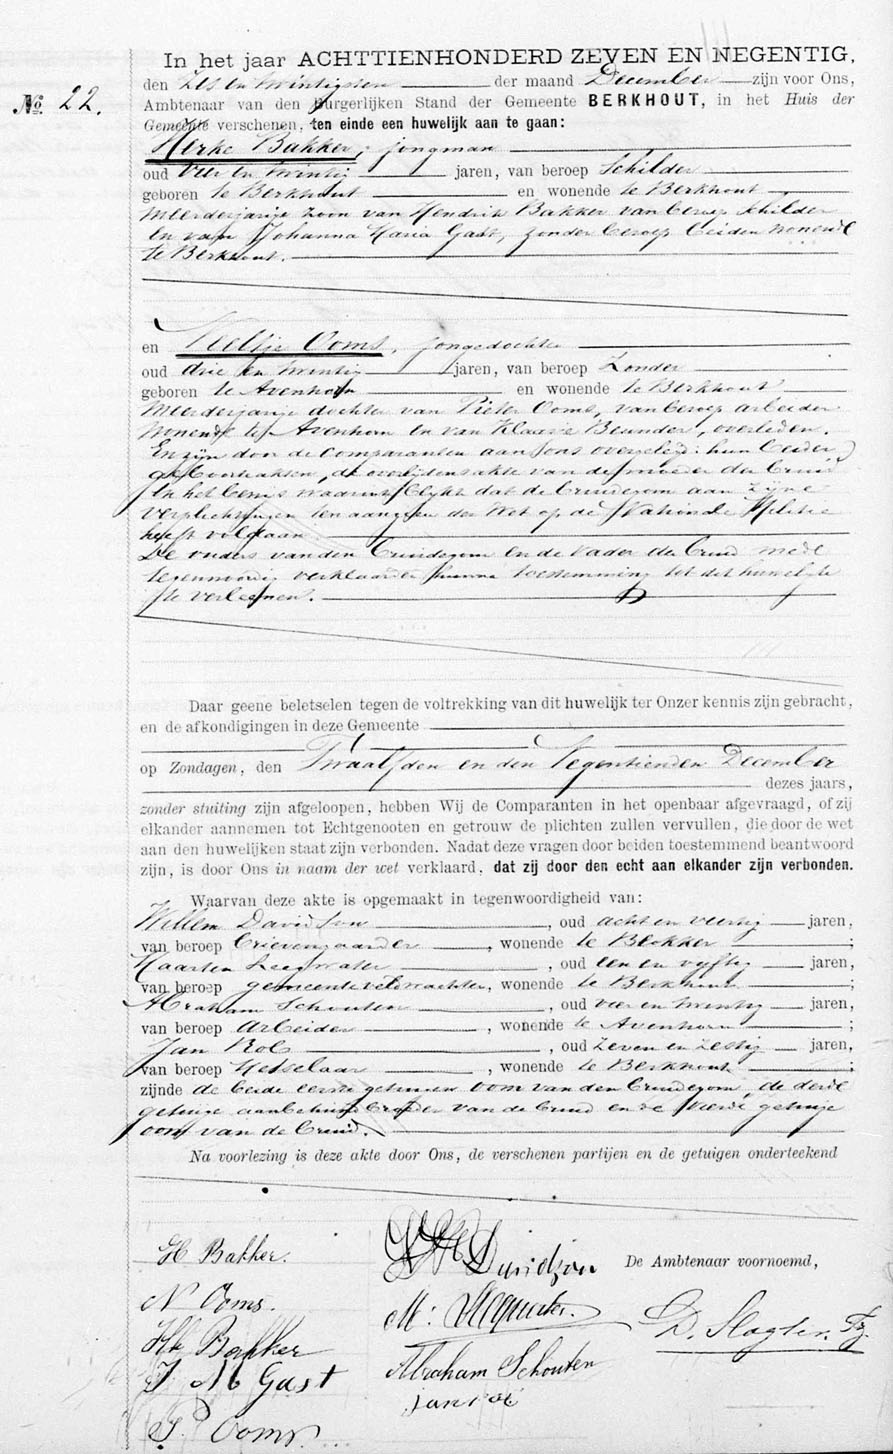 In het jaar ACHTTIENHONDERD ZEVEN EN NEGENTIG,
den Zes en twintigsten der maand December zijn voor Ons,
No. 22.
Ambtenaar van den Burgerlijken Stand der Gemeente BERKHOUT, in het Huis der
Gemeente verschenen, ten einde een huwelijk aan te gaan:
Bakker, jongman
oud vier en twintig jaren, van beroep Schilder
geboren te Berkhout en wonende te Berkhout
meerderjarige zoon van Hendrik Bakker van beroep schilder
en van Johanna Maria Gast, zonder beroep beiden wonende
te Berkhout.
en Neeltje Ooms, jongedochter
oud drie en twintig jaren, van beroep Zonder
geboren te Avenhorn en wonende te Berkhout
meerderjarige dochter van Pieter Ooms, van beroep arbeider
wonende te Avenhorn en van Klaasje Beunder, overleden.
En zijn door de comparanten aan ons overgelegd: hun beider
geboorteakten, de overlijdensakte van de moeder der bruid
en het bewijs waaruit blijkt dat de bruidegom aan zijne
verplichtingen ten aanzien der Wet op de Nationale Militie
heeft voldaan.
De ouders van den bruidegom en de vader der bruid mede
tegenwoordig verklaarden hunne toestemming tot dit huwelijk
te verleenen.
Daar geene beletselen tegen de voltrekking van dit huwelijk ter Onzer kennis zijn gebracht,
en de afkondigingen in deze Gemeente
op Zondagen, den Twaalfden en den Negentienden December
dezes jaars,
zonder stuiting zijn afgeloopen, hebben Wij de Comparanten in het openbaar afgevraagd, of zij
elkander aannemen tot Echtgenooten en getrouw de plichten zullen vervullen, die door de wet
aan den huwelijken staat zijn verbonden. Nadat deze vragen door beiden toestemmend beantwoord
zijn, is door Ons in naam der wet verklaard, dat zij door den echt aan elkander zijn verbonden.
Waarvan deze akte is opgemaakt in tegenwoordigheid van:
Willem Davidson, oud acht en veertig jaren,
van beroep brievengaarder, wonende te Blokker;
Maarten Leegwater, oud een en vyftig jaren,
van beroep gemeenteveldwachter, wonende te Berkhout;
Abraham Schouten, oud vier en twintig jaren,
van beroep arbeider, wonende te Avenhorn;
Jan Kok, oud zeven en zestig jaren,
van beroep Metselaar, wonende te Berkhout;
zijnde de beide eerste getuigen oom van den bruidegom, de derde
getuige aanbehuwd broeder van de bruid en de vierde getuige
oom van de bruid.
Na voorlezing is deze akte door Ons, de verschenen partijen en de getuigen onderteekend
H Bakker.
N Ooms.
Hk Bakker
J M Gast
P Ooms
Davidson
M:
Abraham Schouten
Jan Kok
De Ambtenaar voornoemd,
D. Slagter